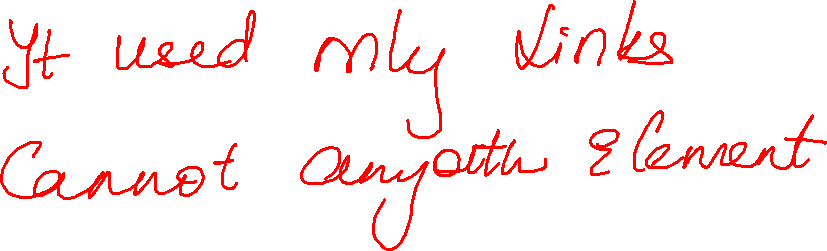 It used only Links
Cannot anyoth Element